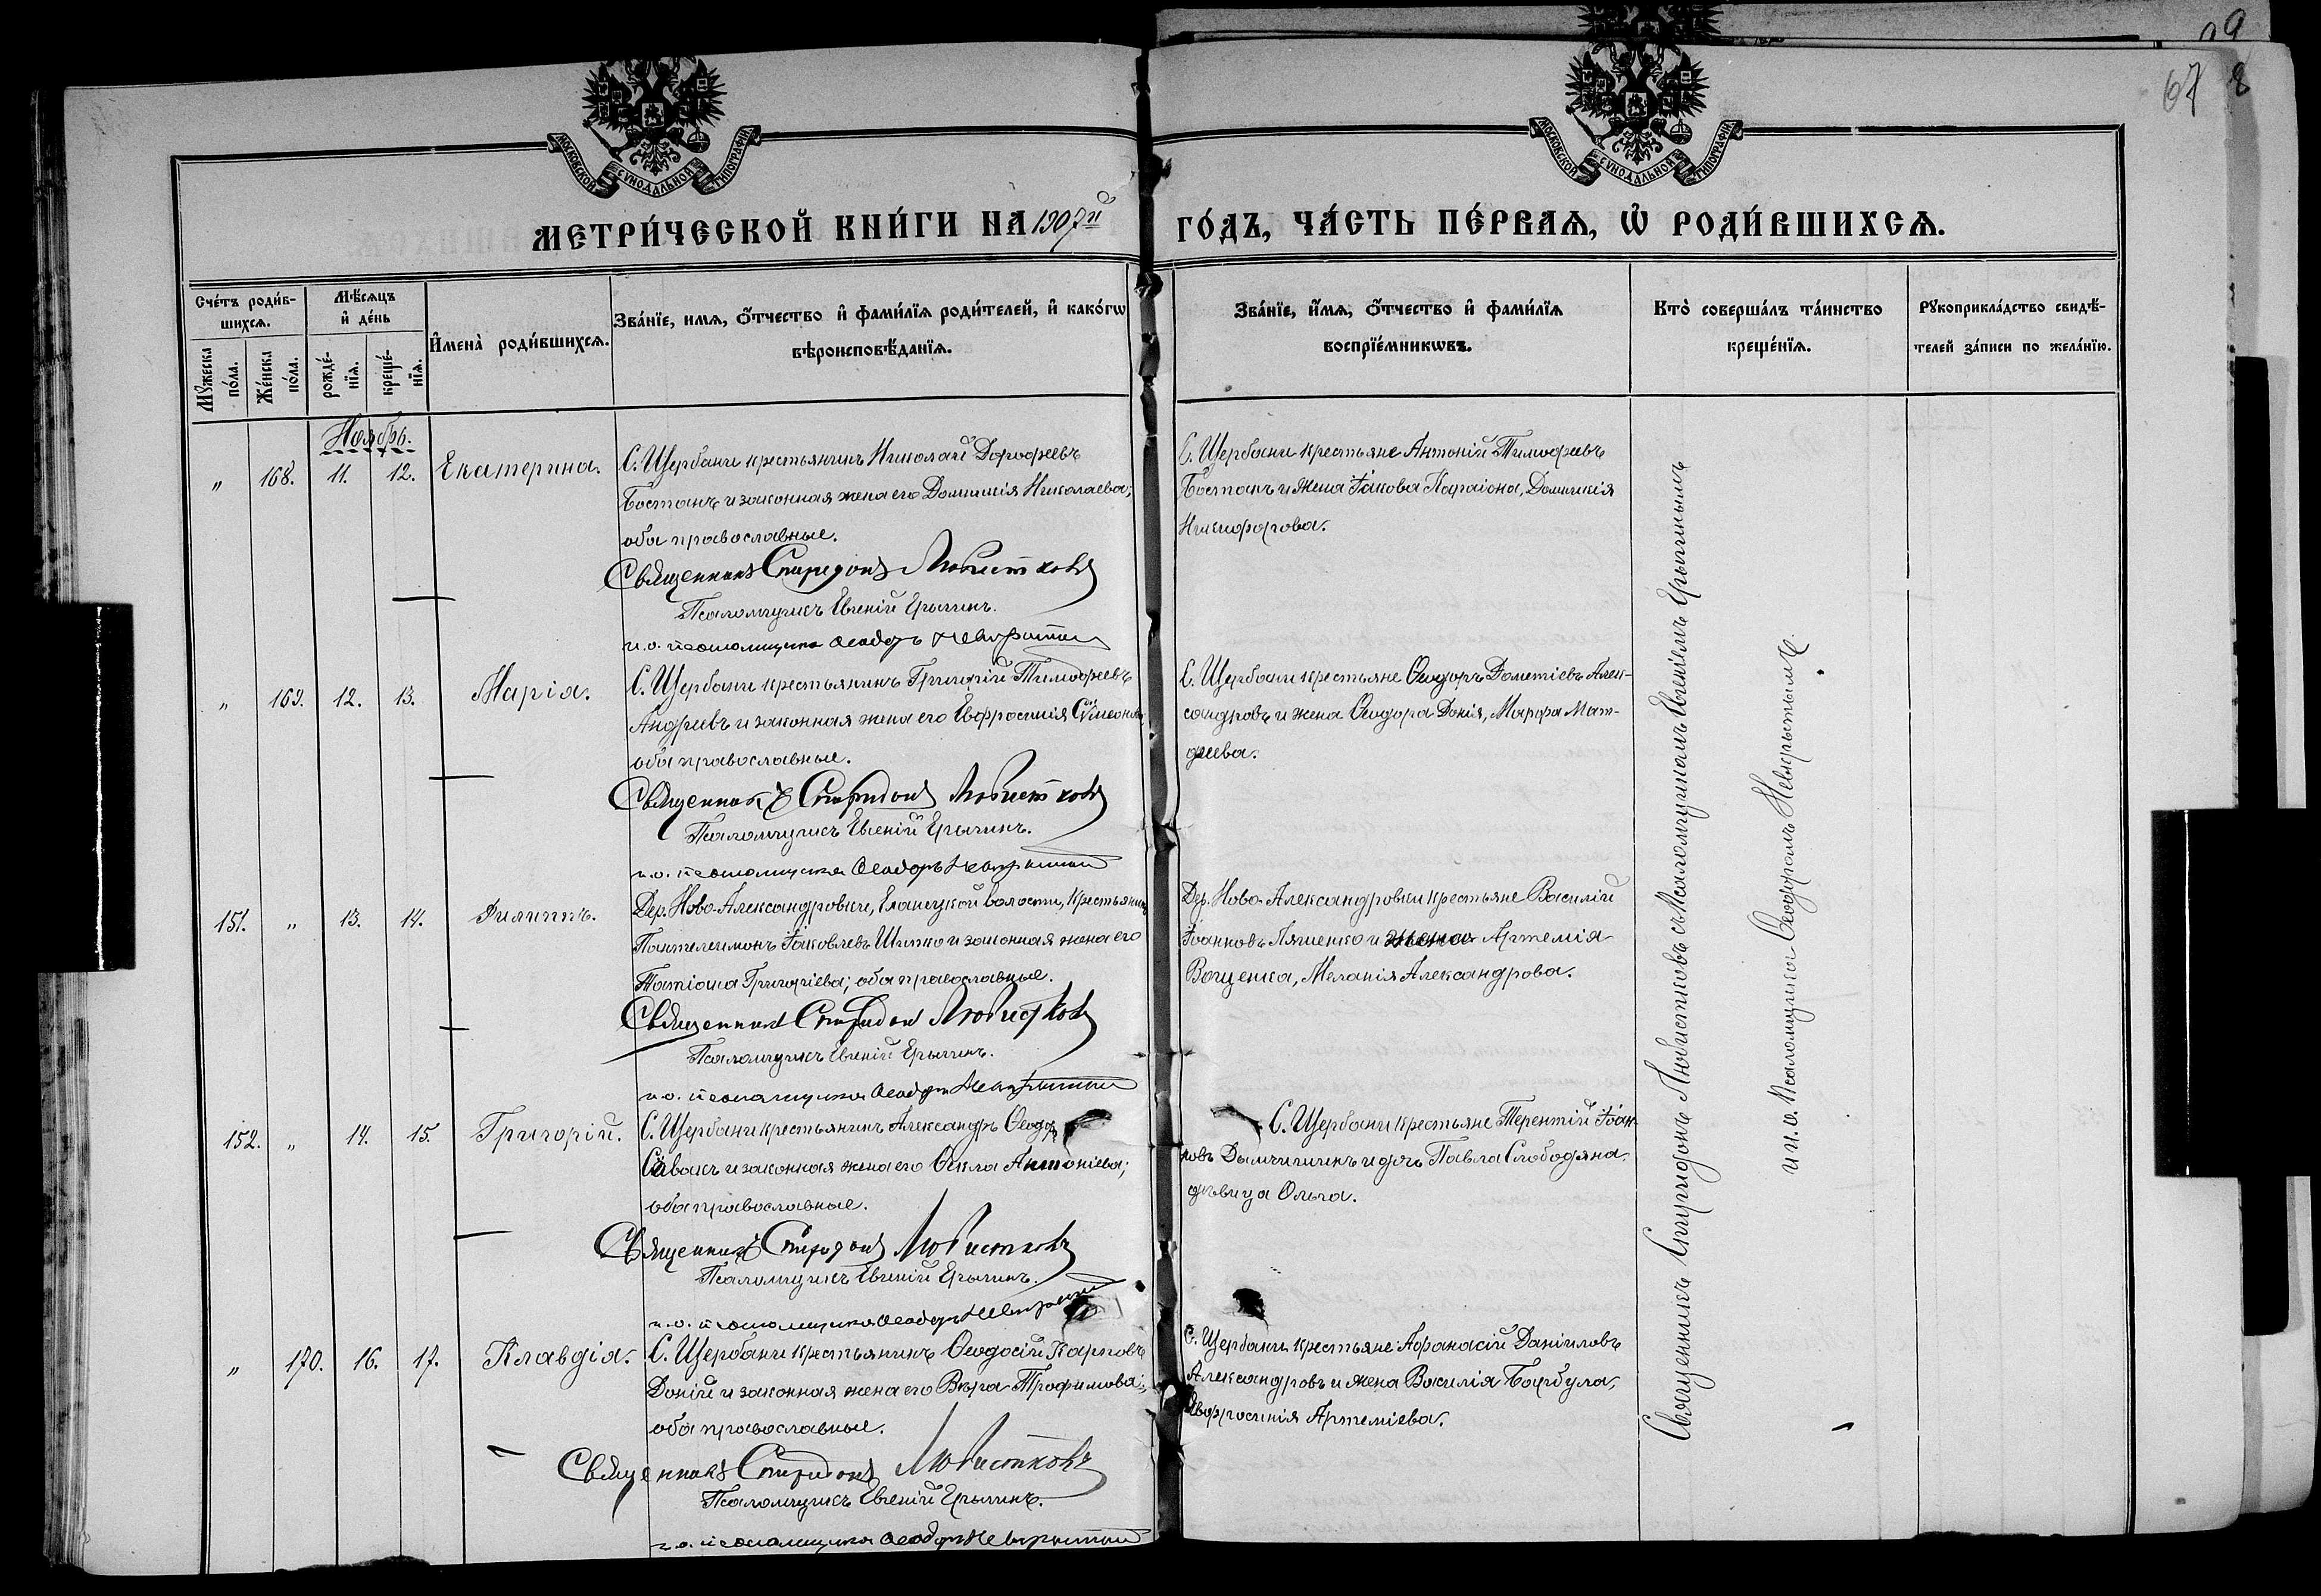 99
67 8
МОСКОВСКОЙ СѴНОДАЛЬНОЙ ТИПОГРАФІИ
МОСКОВСКОЙ СѴНОДАЛЬНОЙ ТИПОГРАФІИ
МЕТРИ́ЧЕСКОЙ КНИ́ГИ НА 1907й ГО́ДЪ, ЧА́СТЬ ПЕ́РВАѦ, Ѽ РОДИ́ВШИХСѦ.
Сче́тъ роди́в-
шихсѧ.
Мꙋ́жеска по́ла.
Же́нска по́ла.
Мѣ́сѧцъ и҆ де́нь
рожде́-нїѧ.
креще́-нїѧ.
И҆мена̀ роди́вшихсѧ.
Зва́нїе, имѧ, ѻ҆́тчество и҆ фами́лїѧ роди́телей, и҆ како́гѡ
вѣроисповѣ́данїѧ.
Зва́нїе, и҆́мѧ, ѻ҆́тчество и҆ фами́лїѧ
воспрїе́мникѡвъ.
Кто̀ соверша́лъ та́инство
креще́нїѧ.
Рꙋкоприкла́дство свидѣ́-
телей за́писи по жела́нїю.
Ноябрь.
„ 168. 11. 12. Екатерина.
С. Щербани крестьянинъ Николай Дорофеевъ
Бостанъ и законная жена его Доминикія Николаева;
оба православные.
Священникъ Спиридонъ Любистковъ
Псаломщикъ Евгеній Ерыгинъ.
и.о. псаломщика Ѳеодоръ Невкрытый
С. Щербани крестьяне Антоній Тимофеевъ
Бостанъ и жена Іакова Параіона, Доминикія
Никифорова.
„ 169. 12. 13. Марія.
С. Щербани крестьянинъ Григорій Тимофеевъ
Андреевъ и законная жена его Евфросинія Сѵмеонова
оба православные.
Священникъ Спиридонъ Любистковъ
Псаломщикъ Евгеній Ерыгинъ.
и.о. псаломщика Ѳеодоръ Невкрытый
С. Щербани крестьяне Ѳеодоръ Дометіевъ Алек-
сандровъ и жена Ѳеодора Донія, Марфа Мат-
феева.
151. „ 13. 14. Филиппъ.
Дер. Ново-Александровки, Еланецкой волости, крестьянинъ
Пантелеимонъ Іаковлевъ Шитко и законная жена его
Татіана Григоріева; оба православные.
Священникъ Спиридонъ Любистковъ
Псаломщикъ Евгеній Ерыгинъ.
и.о. псаломщика Ѳеодоръ Невкрытый
Др. Ново-Александровки крестьяне Василій
Іоанновъ Ляшенко и жена Артемія
Ващенка, Меланія Александрова.
152. „ 14. 15. Григорій.
С. Щербани крестьянинъ Александръ Ѳеодо
Савакъ и законная жена его Ѳекла Антоніева;
оба православные.
Священникъ Спиридонъ Любистковъ
Псаломщикъ Евгеній Ерыгинъ.
и.о. псаломщика Ѳеодоръ Невкрытый
С. Щербани крестьяне Терентій Іоан-
новъ и дочь Павла Слободяна
дѣвица Ольга.
„ 170. 16. 17. Клавдія.
С. Щербани крестьянинъ Ѳеодосій Карповъ
Доній и законная жена его Вѣра Трофимова;
оба православные.
Священникъ Спиридонъ Любистковъ
Псаломщикъ Евгеній Ерыгинъ.
и.о. псаломщика Ѳеодоръ Невкрытый
С. Щербани крестьяне Афанасій Даніиловъ
Александровъ и жена Василія Барбула,
Евфросинія Артеміева.
Священникъ Спиридонъ Любистковъ съ Псаломщикомъ Евгеніемъ Ерыгинымъ
и и. о. Псаломщика Ѳеодоромъ Невкрытымъ.